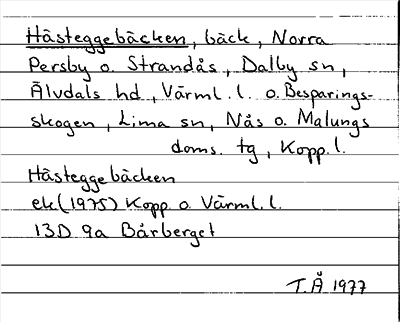 Hästeggebäcken, bäck, Norra
Persby o. Strandås, Dalby sn,
Älvdals hd, Värml. l. o. Besparings-
skogen, Lima sn, Nås o. Malungs
doms. tg, Kopp. l.
Hästeggebäcken
ek (1975) Kopp. o. Värml. l.
13D 9a Bårberget
T.Å 1977